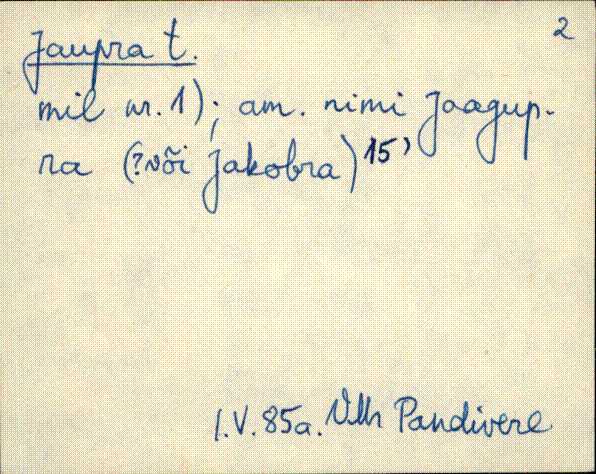 2
Jaupra t.
mil nr. 1); am. nimi Jaagup-
ra (?või Jakobra) 15)
1.V.85a. VMr Pandivere